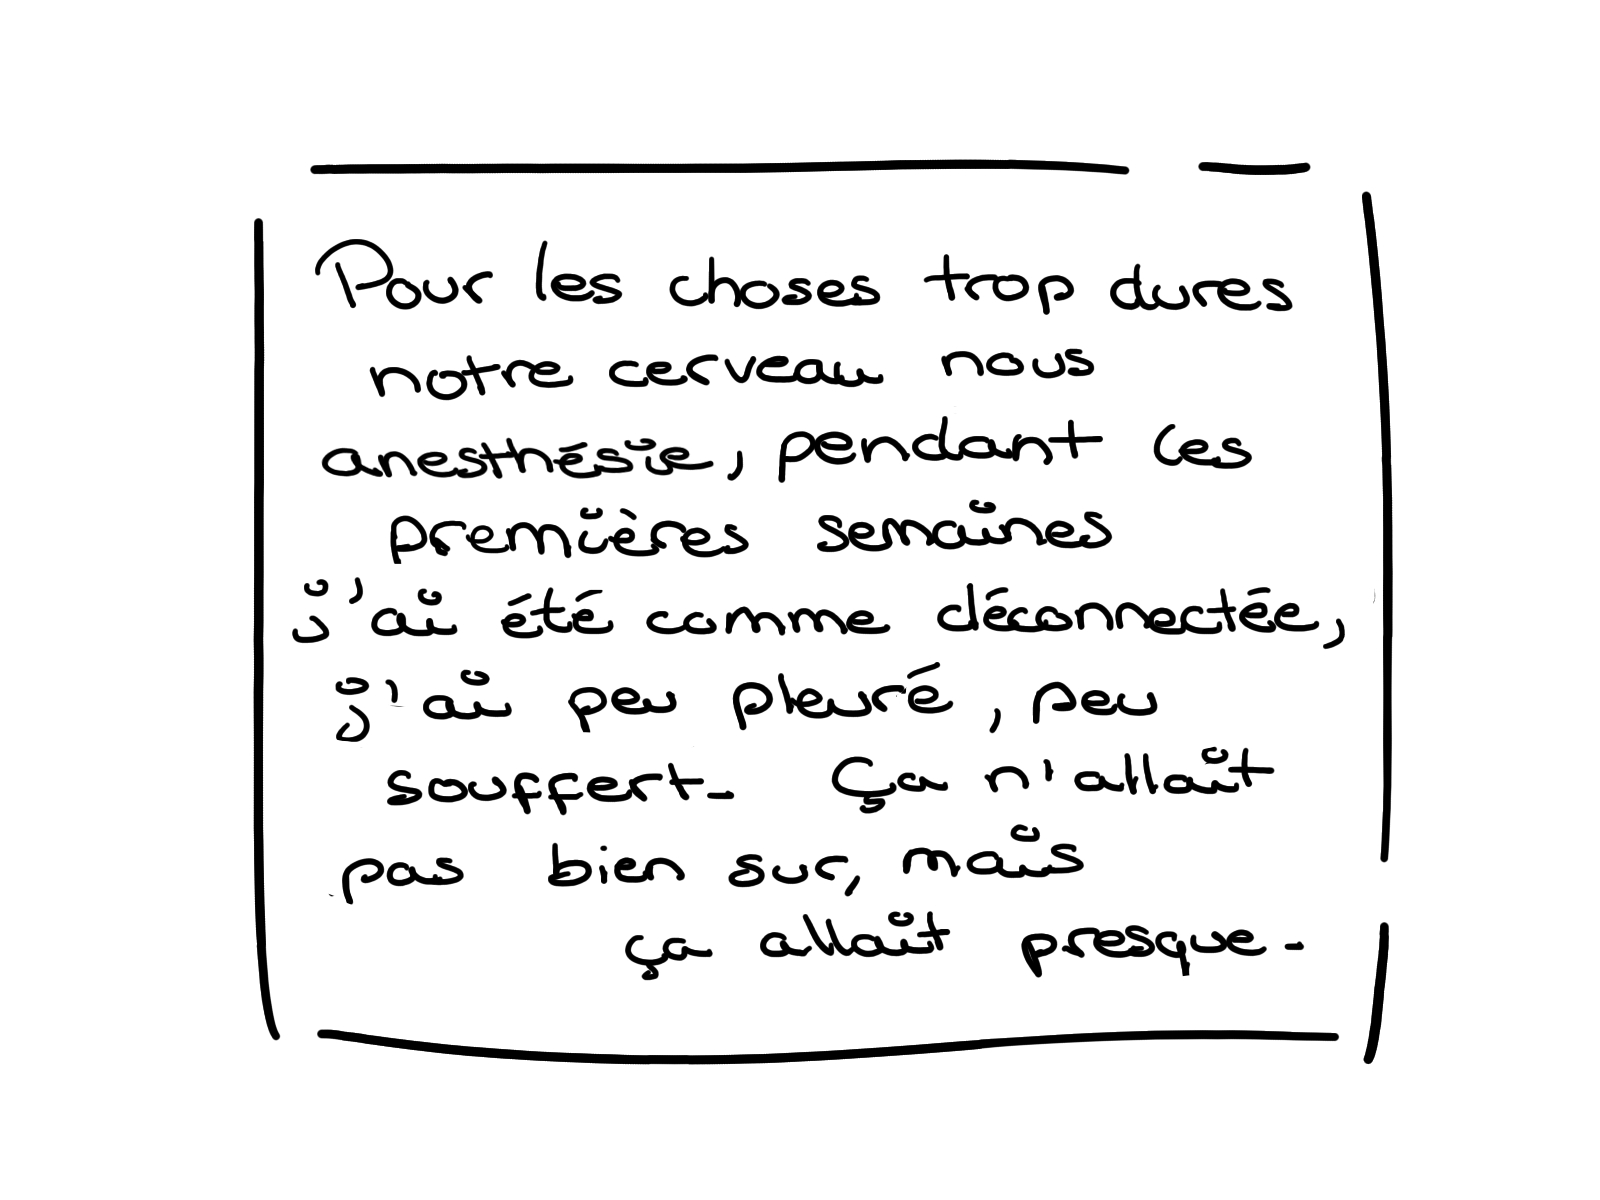 Pour les choses trop dures
notre cerveau nous
anesthésie, pendant les
premières semaines
j'ai été comme déconnectée,
j'ai peu pleuré, peu
souffert. Ça n'allait
pas bien sur, mais
ça allait presque.